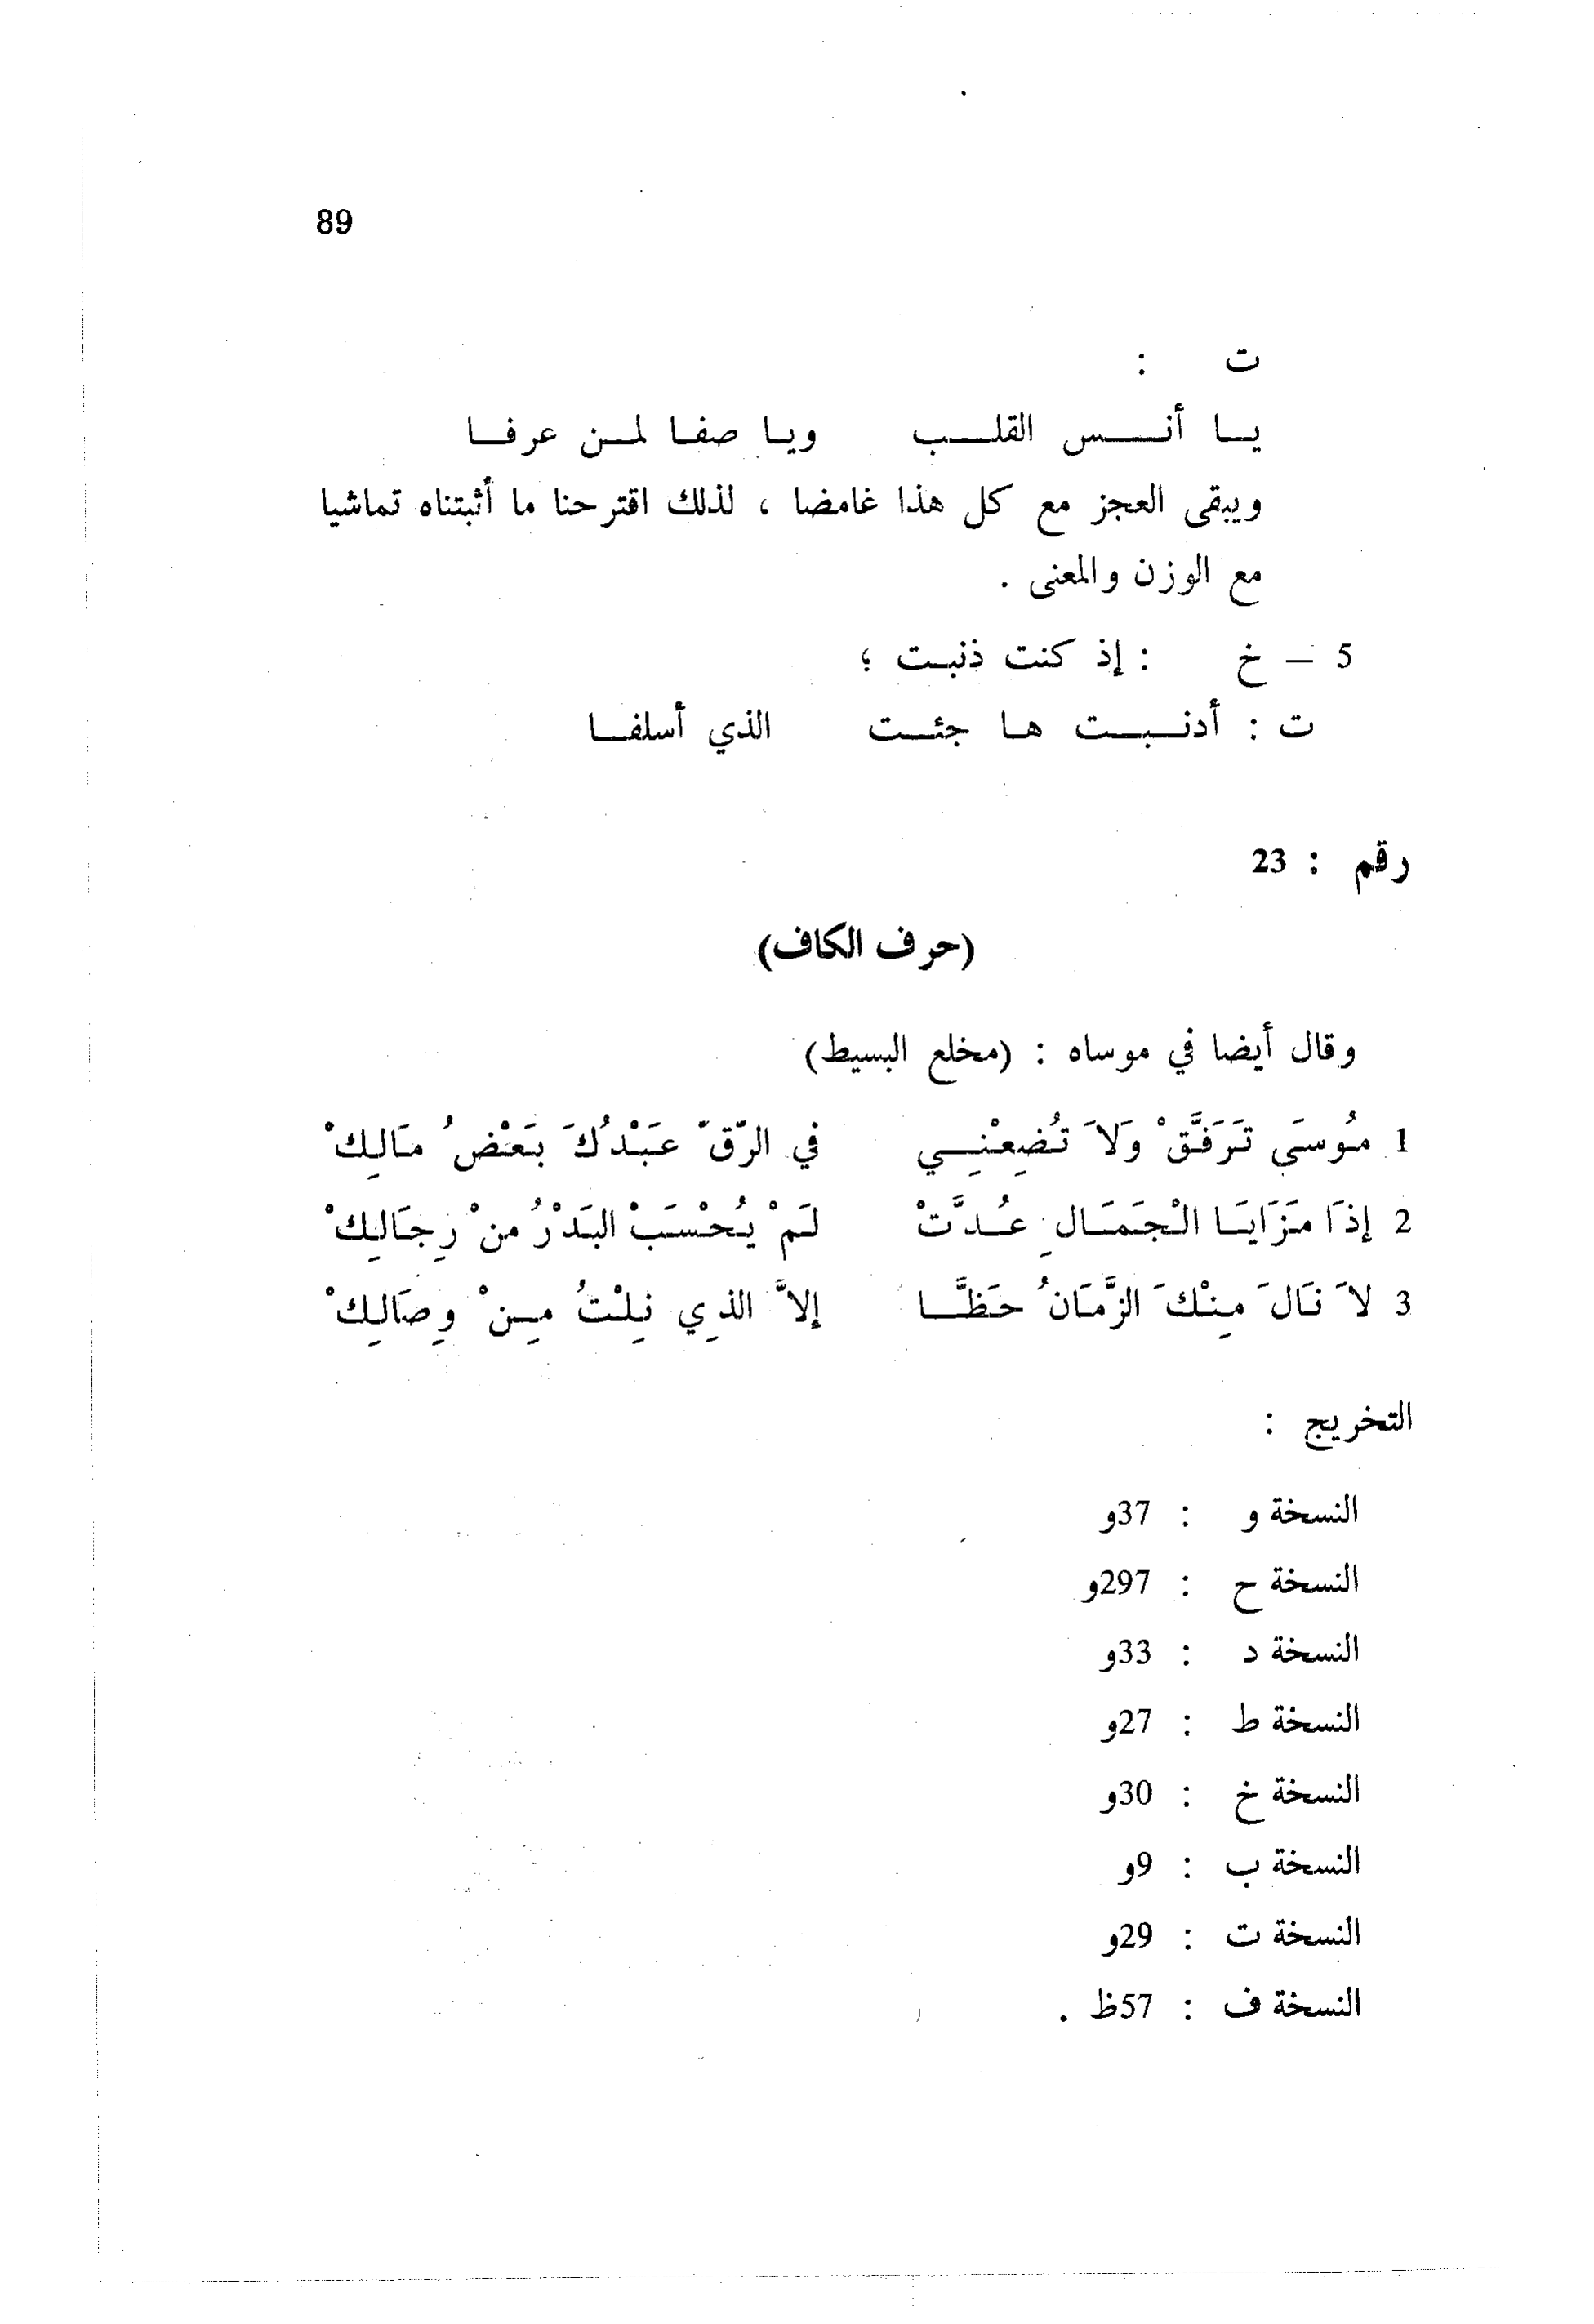 89
ت :
يا أنس القلب ويا صفا لمن عرفا
ويبقى العجز مع كل هذا غامضا ، لذلك اقترحنا ما أثبتناه تماشيا
مع الوزن والمعنى .
5 – خ : إذ كنت ذنبت ؛
ت : أدنبت ها جئت الذي أسلفا
رقم : 23
(حرف الكاف)
وقال أيضا في موساه : (مخلع البسيط)
1 مُوسَى تَرَفَّقْ وَلاَ تُضِعْنِي في الرّقّ عَبْدُكَ بَعْضُ مَالِكْ
2 إذَا مَزَايَا الْجَمَالِ عُدَّتْ لَمْ يُحْسَبْ البَدْرُ منْ رِجَالِكْ
3 لاَ نَالَ مِنْكَ الزَّمَانُ حَظَّا إلاَّ الذِي نِلْتُ مِنْ وِصَالِكْ
التخريج :
النسخة و : 37و
النسخة ح : 297و
النسخة د : 33و
النسخة ط : 27و
النسخة خ : 30و
النسخة ب : 9و
النسخة ت : 29و
النسخة ف : 57ظ .